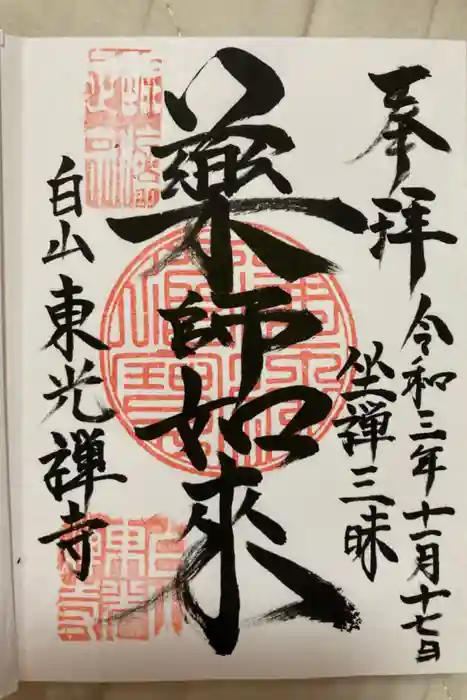 奉拝 令和三年十一月十七日
坐禅三昧
薬師如来
白山東光禅寺